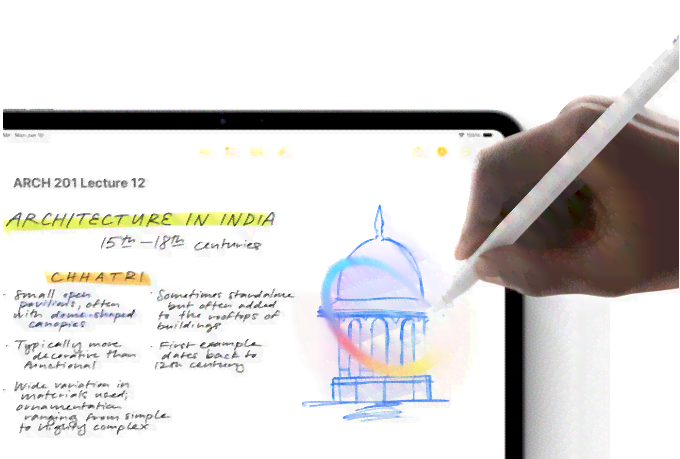 Mon Jun 10
100%
ARCH 201 Lecture 12
ARCHITECTURE IN INDIA
15th – 18th centuries
CHHATRI
· Small open
pavilions, often
with dome-shaped
canopies
· Typically more
decorative than
functional
· Wide variation in
materials used;
ornamentation
ranging from simple
to highly complex
· Sometimes standalone
but often added
to the rooftops of
buildings
· First example
dates back to
12th century